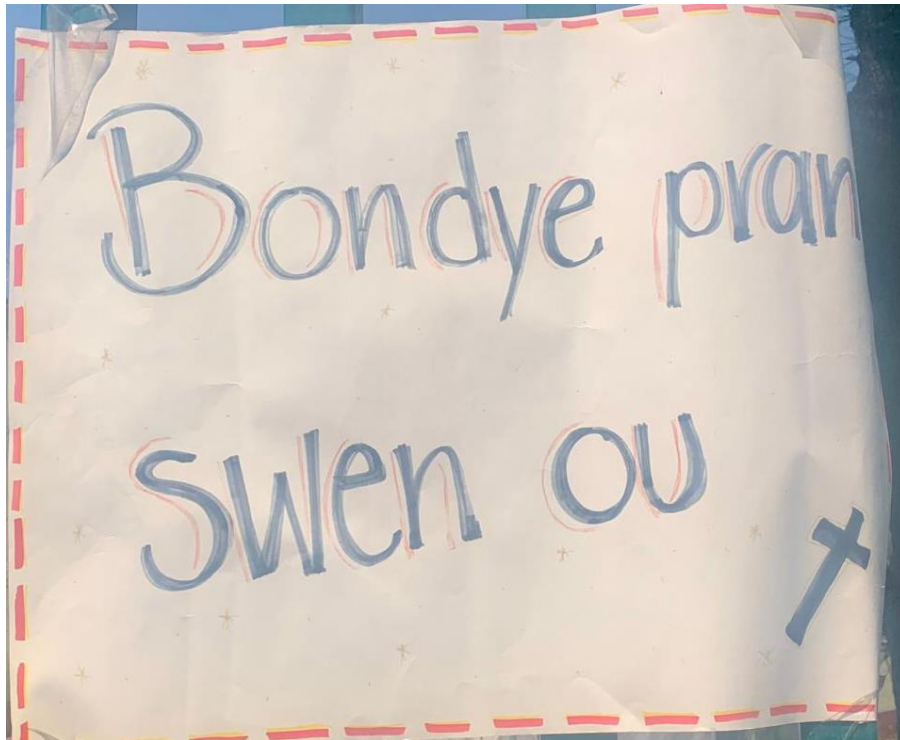 Bondye pran
Swen ou